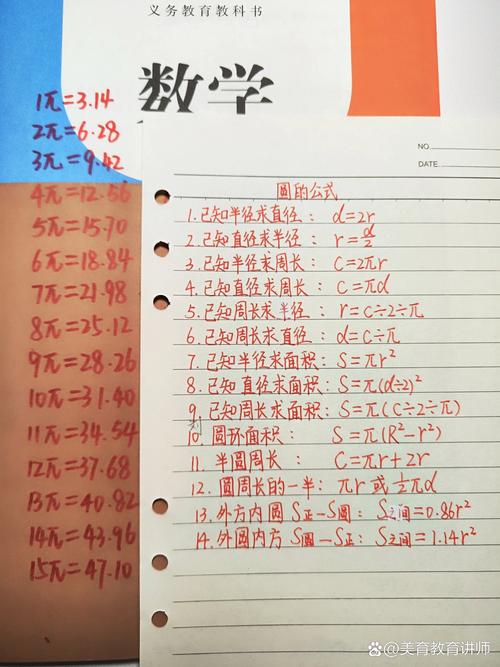 义务教育教科书
数学
1π=3.14
2π=6.28
3π=9.42
4π=12.56
5π=15.70
6π=18.84
7π=21.98
8π=25.12
9π=28.26
10π=31.40
11π=34.54
12π=37.68
13π=40.82
14π=43.96
15π=47.10
NO.
DATE
圆的公式
1.已知半径求直径：d=2r
2.已知直径求半径：r=d/2
3.已知半径求周长：C=2πr
4.已知直径求周长：C=πd
5.已知周长求半径：r=C÷2÷π
6.已知周长求直径：d=C÷π
7.已知半径求面积：S=πr²
8.已知直径求面积：S=π(d÷2)²
9.已知周长求面积：S=π(C÷2÷π)
10.圆环面积：S=π(R²-r²)
11.半圆周长：C=πr+2r
12.圆周长的一半：πr或½πd
13.外方内圆 S正-S圆：S之间=0.86r²
14.外圆内方 S圆-S正：S之间=1.14r²
美育教育讲师